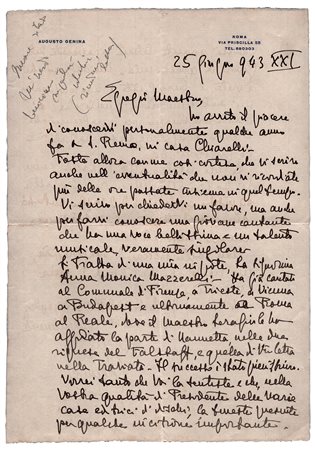 AUGUSTO GENINA
ROMA
VIA PRISCILLA 55
TEL. 880303
25 Giugno 943 XXI
Egregio Maestro,
ho avuto il piacere
di conoscerLi personalmente qualche anno
fa a S. Remo, in casa Chiarelli.
Foste allora con me così cortese che Vi scrivo
anche nell'eventualità che non vi ricordiate
più delle ore passate insieme in quel tempo.
Vi scrivo per chiedervi un favore, ma anche
per farvi conoscere una giovane cantante
che ha una voce bellissima e un talento
musicale, veramente singolare.
Si tratta di una mia nipote, la signorina
Anna Monica Mazzerelli. Ha già cantato
al Comunale di Firenze, a Trieste, a Vienna
a Budapest e ultimamente a Roma
al Reale, dove il Maestro Serafin le ha
affidato la parte di Nannetta nelle due
riprese del Falstaff, e quella di Violetta
nella Traviata. Il successo è stato
Vorrei tanto che Voi la sentiste e che, nella
vostra qualità di Presidente delle varie
case editrici di dischi, la teneste presente
per qualche incisione importante.